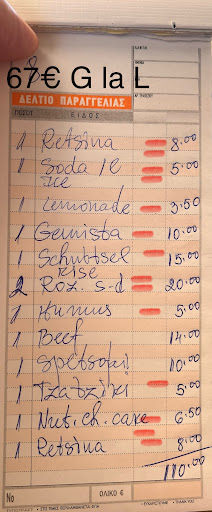 8
68€ G la L
ΔΕΛΤΙΟ ΠΑΡΑΓΓΕΛΙΑΣ
ΠΟΣΟΤ. ΕΙΔΟΣ
1 Retsina 8.00
1 Soda 1e 5.00
Ice
1 Lemonade 3.50
1 Gemista 10.00
1 Schnitsel 15.00
Rise
2 Roz. s-d 20.00
1 Humus 5.00
1 Beef 14.00
1 Spetsofai 10.00
1 Tzatziki 5.00
1 Nut.ch.cake 6.50
1 Retsina 8.00
110.00
No ΟΛΙΚΟ €